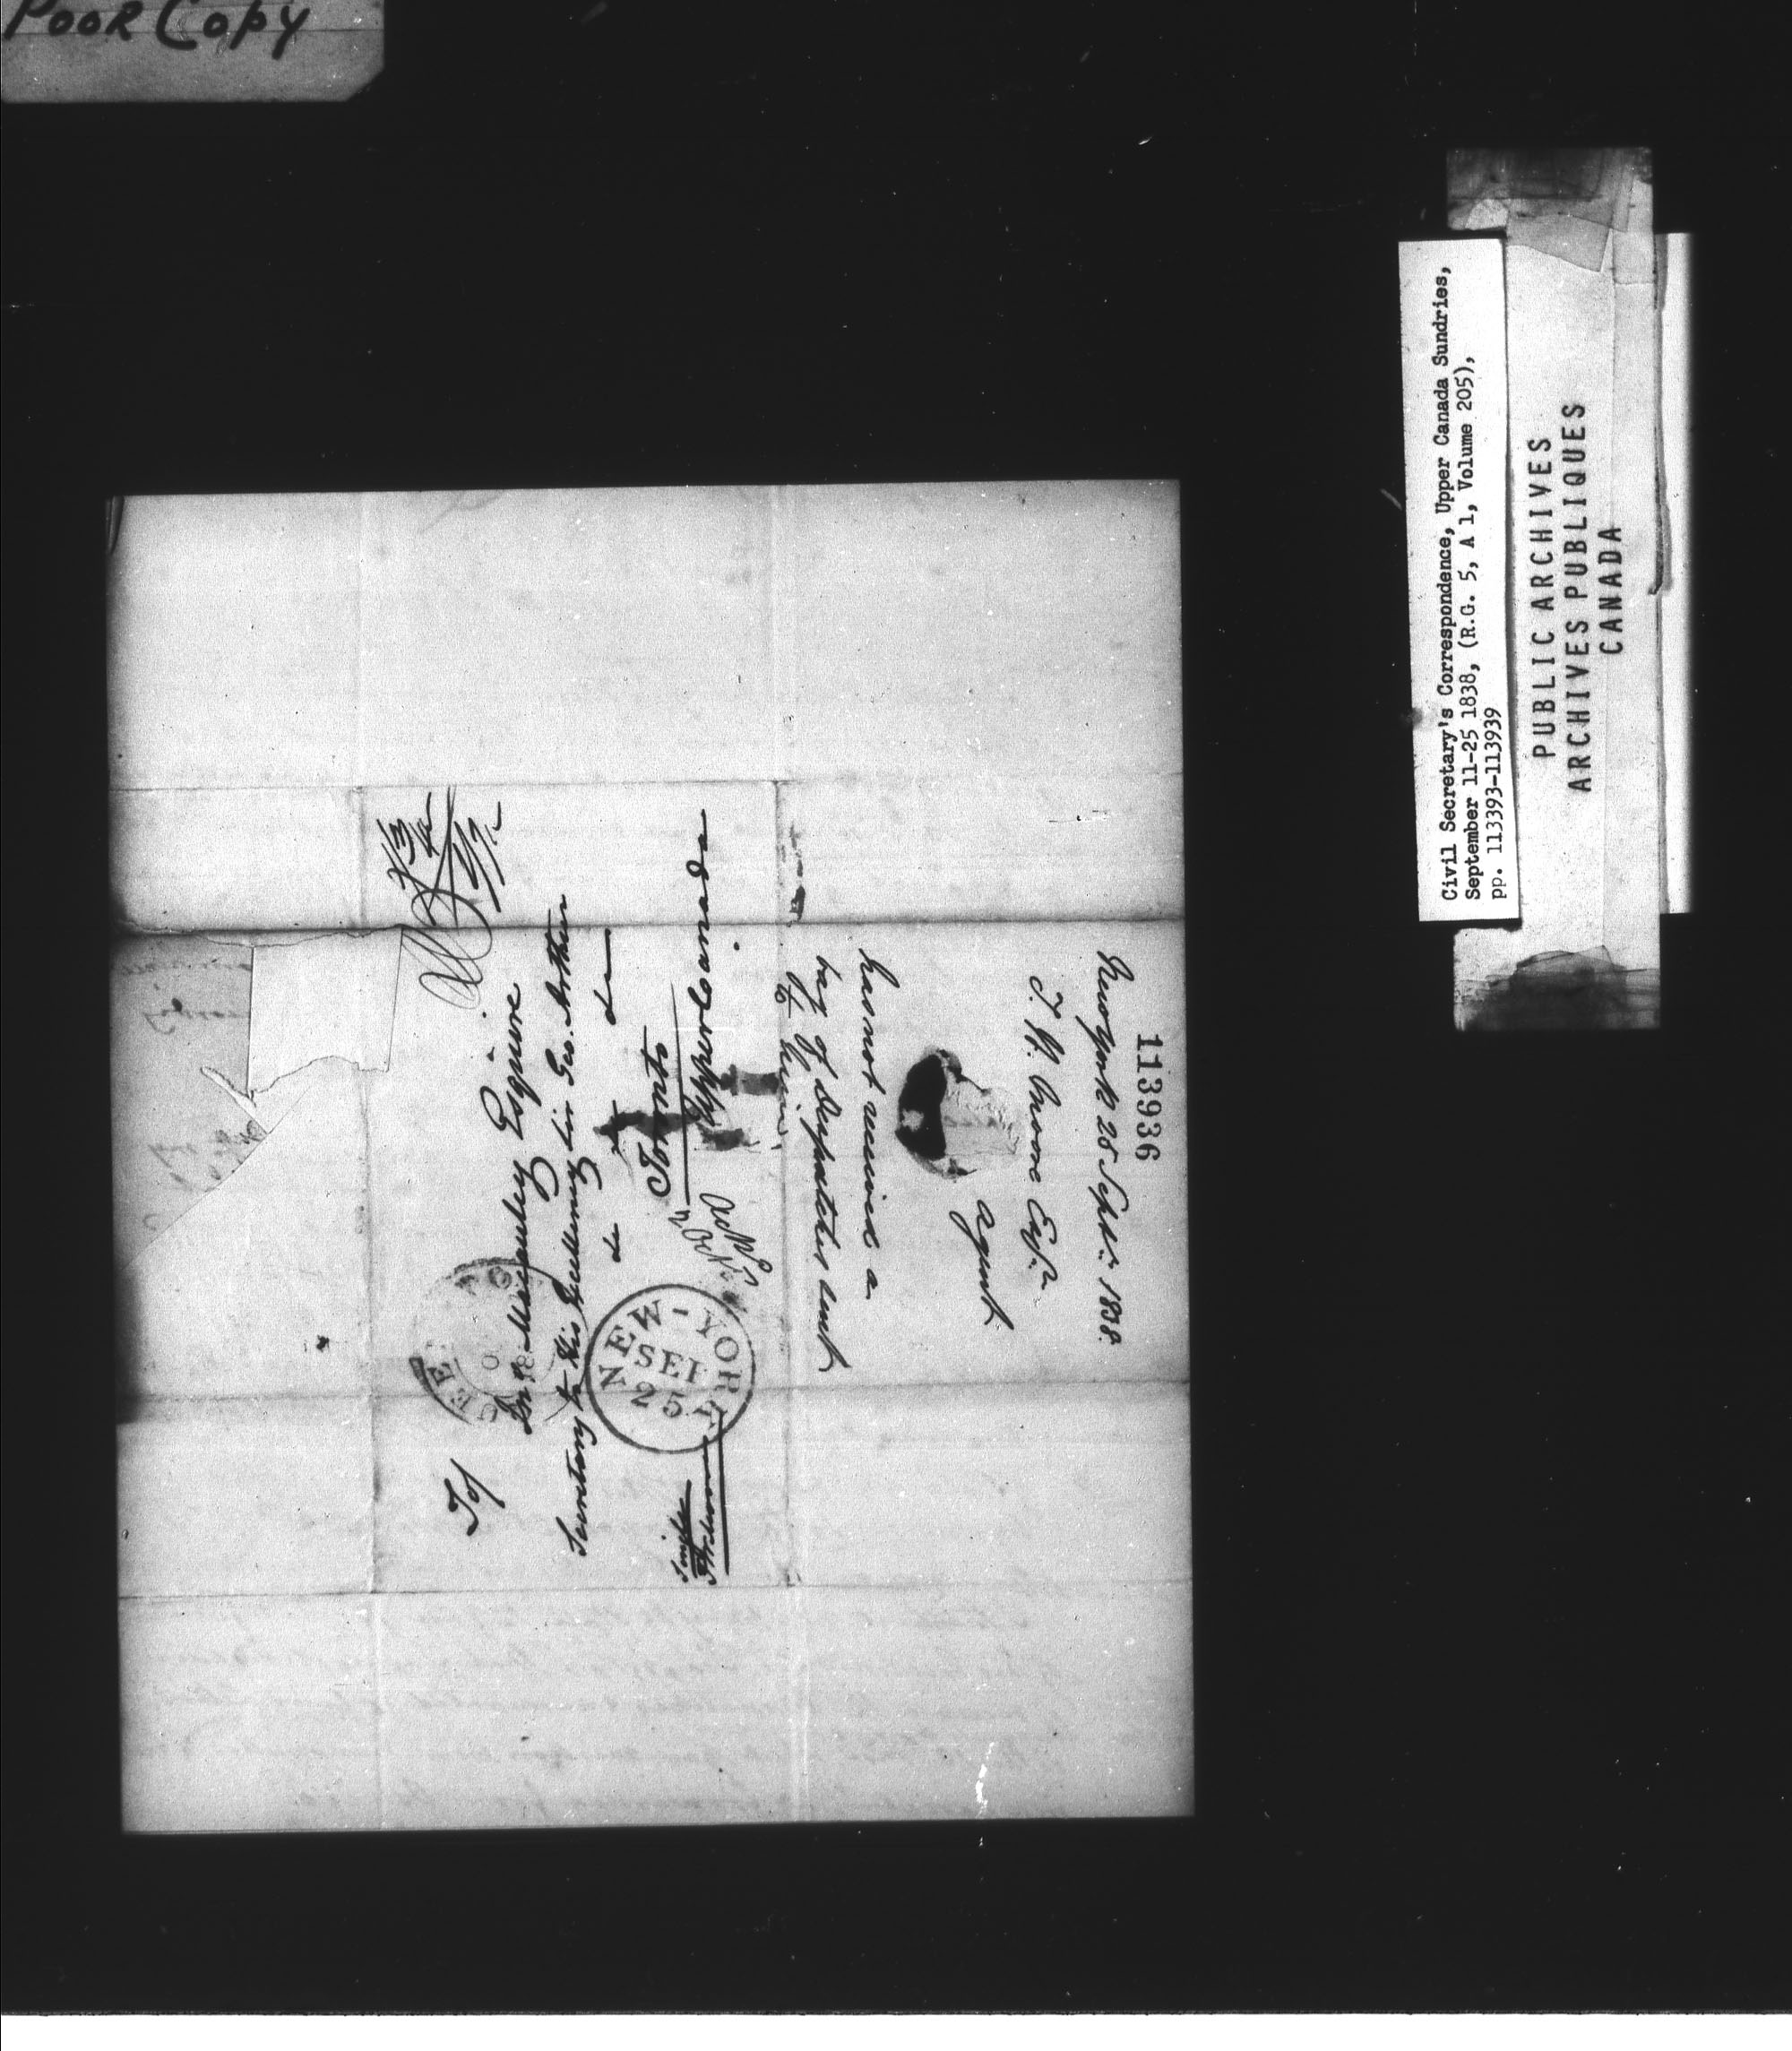 POOR COPY
Civil Secretary's Correspondence, Upper Canada Sundries,
September 11-25 1838, (R.G. 5, A 1, Volume 205),
pp. 113393-113939
PUBLIC ARCHIVES
ARCHIVES PUBLIQUES
CANADA
113936
New York 25 Septr. 1838.
T. W. Moore Esqr.
Agent
has not received a
bag of Despatches sent
to him.
To/
Macaulay Esquire
Secretary to His Excellency Sir Geo. Arthur
&c &c &c
Toronto
Upper Canada
Single
NEW-YORK
SEP
25